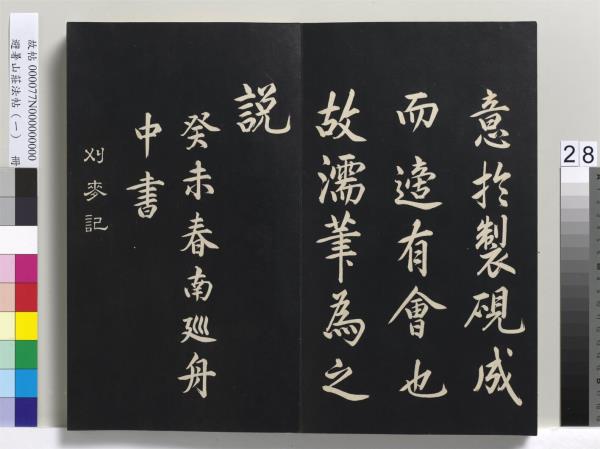 意於製硯成
而遊有會也
故濡筆為之
說
癸未春南巡舟
中書
刈麥記
28
故帖 000077N000000000
避暑山莊法帖（一） 冊